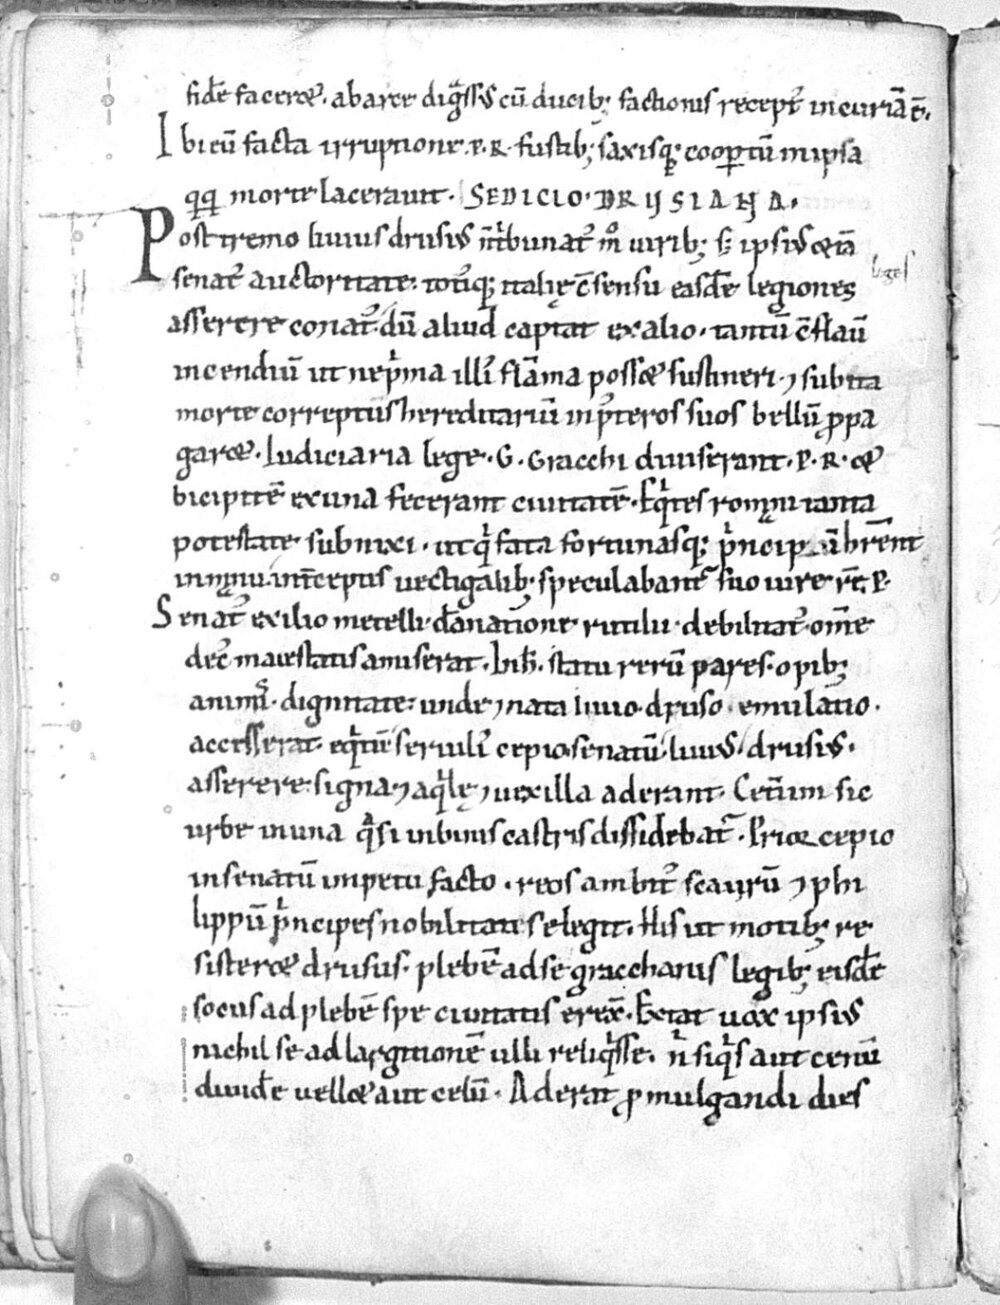 fidē faceret. ab arce digssꝰ cū ducib; factionis recept in curiā ē.
Ibi cū facta irruptione .P.R. fustib; saxisq; coopertū in ipsa
qq morte laceravit. SEDICIO DRUSIANA.
Postremo livius drusus n̄ tribunat m° virib; s; ipsius etiā
senat auctoritate. totiq; italię cōsensu easdē legiones
leges
asserere conat. dū aliud captat ex alio. tantū cōflavit
incendiū ut nec prima illi flāma posset sustineri. ⁊ subita
morte correptus hereditariū in posteros suos bellū propa
garet. Iudiciaria lege .G. Gracchi diviserant .P.R. et
bicipitē ex una fecerant civitatē. Equites romani tanta
potestate subnixi. ut qui fata fortunasq; princip
in manu interceptis vectigalib; speculabant suo iure rē P.
Senat exilio metelli dānatione rutilii debilitat omē
decꝰ maiestatis amiserat. In h̄ statu rerū pares opib;
animis dignitate: unde ⁊ nata livio druso emulatio.
accesserat. equitē servili cepio senatū livius drusus.
asserere. signa ⁊ aqlę ⁊ vexilla aderant. Ceterum sic
urbe in una qsi in binis castris dissidebat. Prior cepio
in senatū impetu facto. reos ambit scaurū ⁊ phi
lippū principes nobilitatis elegit. His ut motib; re
sisteret drusus. plebē ad se gracchanis legib; eisdē
socios ad plebē spe civitatis erex. Extat vox ipsius
nichil se ad largitionē ulli reliqsse. n siqs aut cenū
dividē vellet aut celū. Aderat promulgandi dies